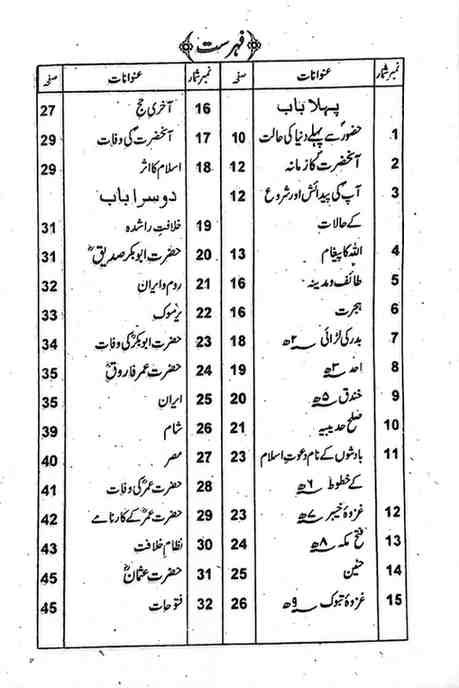 فہرست
نمبر شمار عنوانات صفحہ
پہلا باب
1 حضورؐ سے پہلے دنیا کی حالت 10
2 آنحضرتؐ کا زمانہ 12
3 آپ کی پیدائش اور شروع 12
کے حالات
4 اللہ کا پیغام 13
5 طائف و مدینہ 16
6 ہجرت 16
7 بدر کی لڑائی ۲ھ 18
8 احد ۳ھ 19
9 خندق ۵ھ 20
10 صلح حدیبیہ 21
11 بادشوں کے نام دعوت اسلام 23
کے خطوط ۶ھ
12 غزوۂ خیبر ۷ھ 23
13 فتح مکہ ۸ھ 24
14 حنین 25
15 غزوۂ تبوک ۹ھ 26
نمبر شمار عنوانات صفحہ
16 آخری حج 27
17 آنحضرتؐ کی وفات 29
18 اسلام کا اثر 29
دوسرا باب
19 خلافت راشدہ 31
20 حضرت ابوبکر صدیقؓ 31
21 روم و ایران 32
22 یرموک 33
23 حضرت ابوبکرؓ کی وفات 34
24 حضرت عمر فاروقؓ 35
25 ایران 35
26 شام 39
27 مصر 40
28 حضرت عمرؓ کی وفات 41
29 حضرت عمرؓ کے کارنامے 42
30 نظام خلافت 43
31 حضرت عثمانؓ 45
32 فتوحات 45